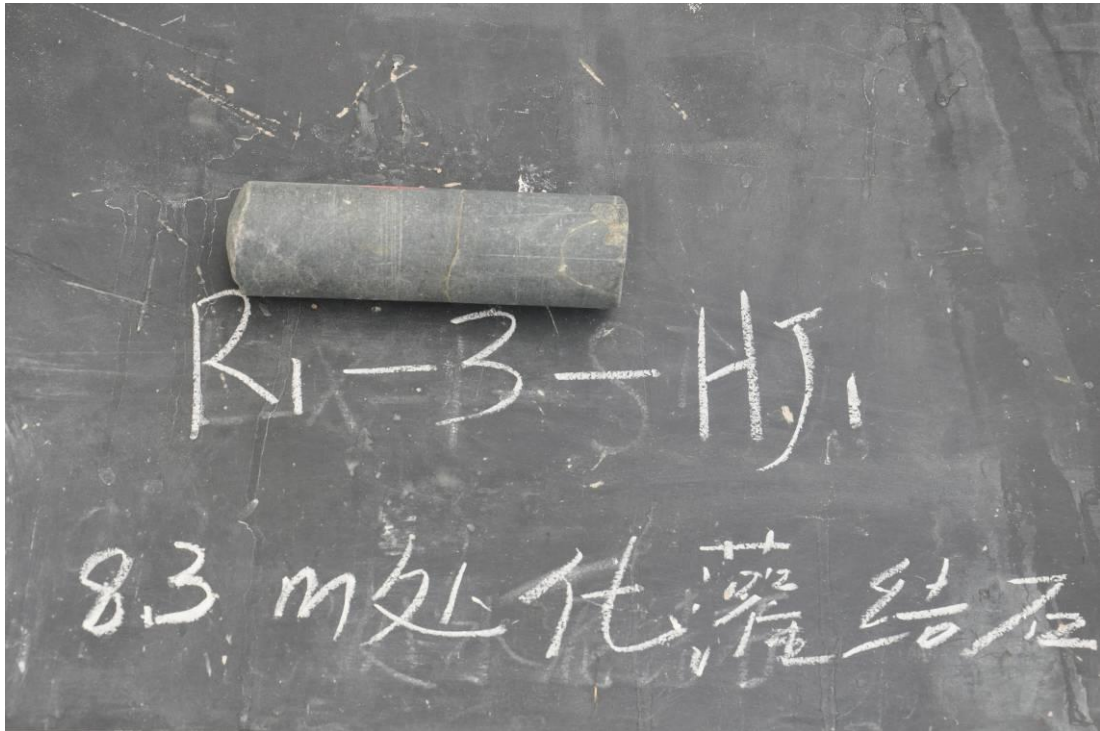 R1-3-HJ1
8.3m处化灌结石